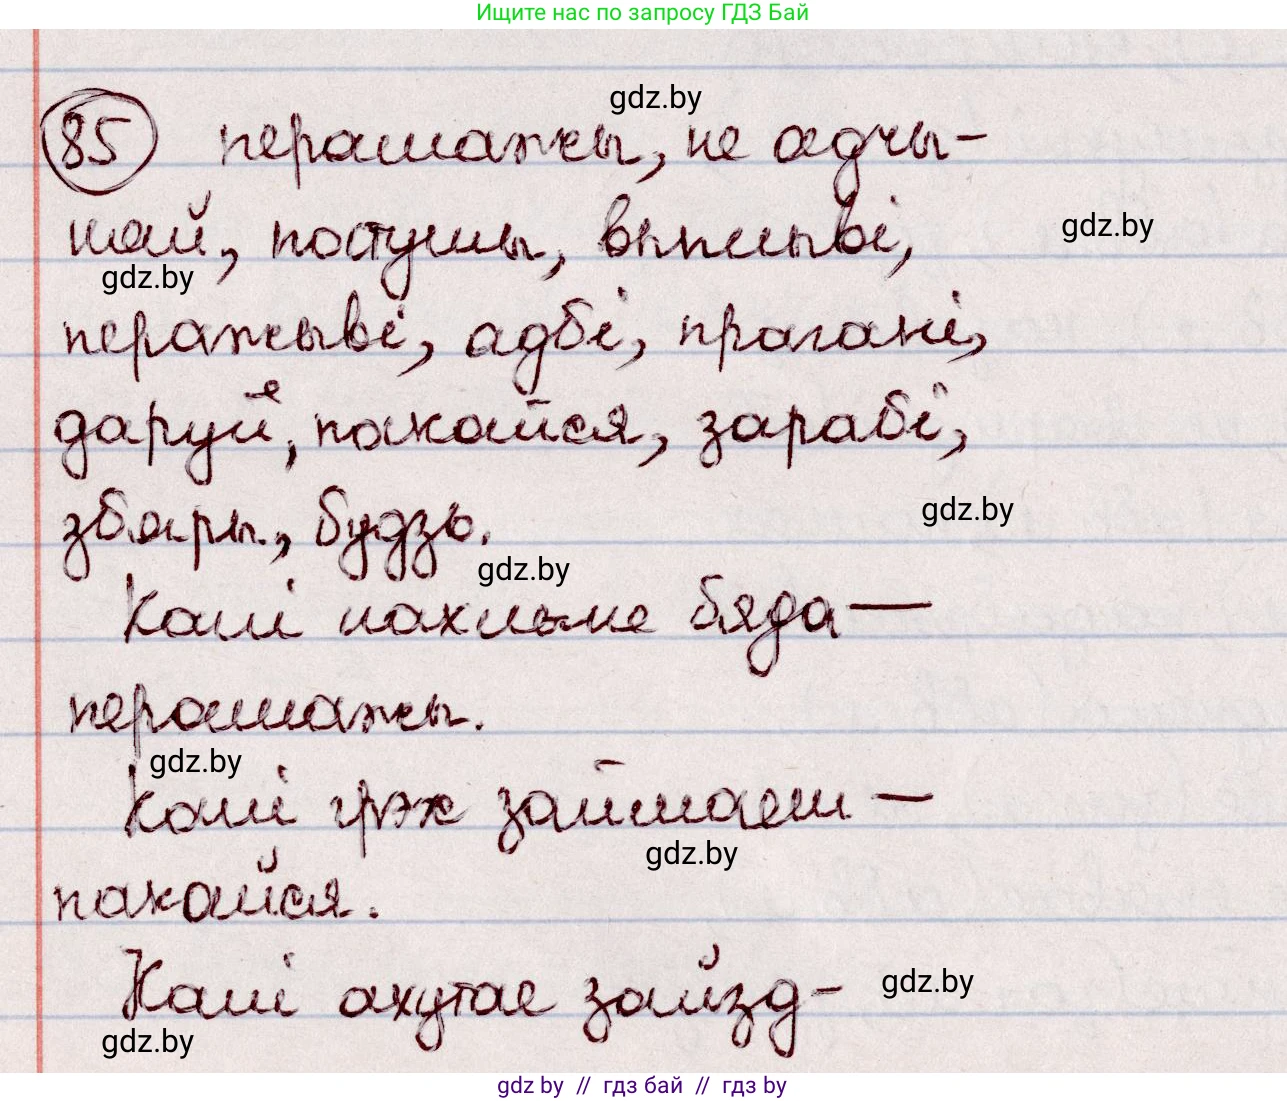 Ищите нас по запросу ГДЗ Бай
gdz.by
85 перамажы, не адчы-
няй, gdz.by
gdz.by
перажыві, адбі, прагані,
даруй, пакайся, зарабі,
збяры, будзь.
gdz.by
gdz.by
Калі нахлыне бяда —
перамажы.
gdz.by
Калі грэх займаеш —
gdz.by
пакайся.
Калі ахутае зайзд-
gdz.by
gdz.by
gdz by // гдз бай // гдз by